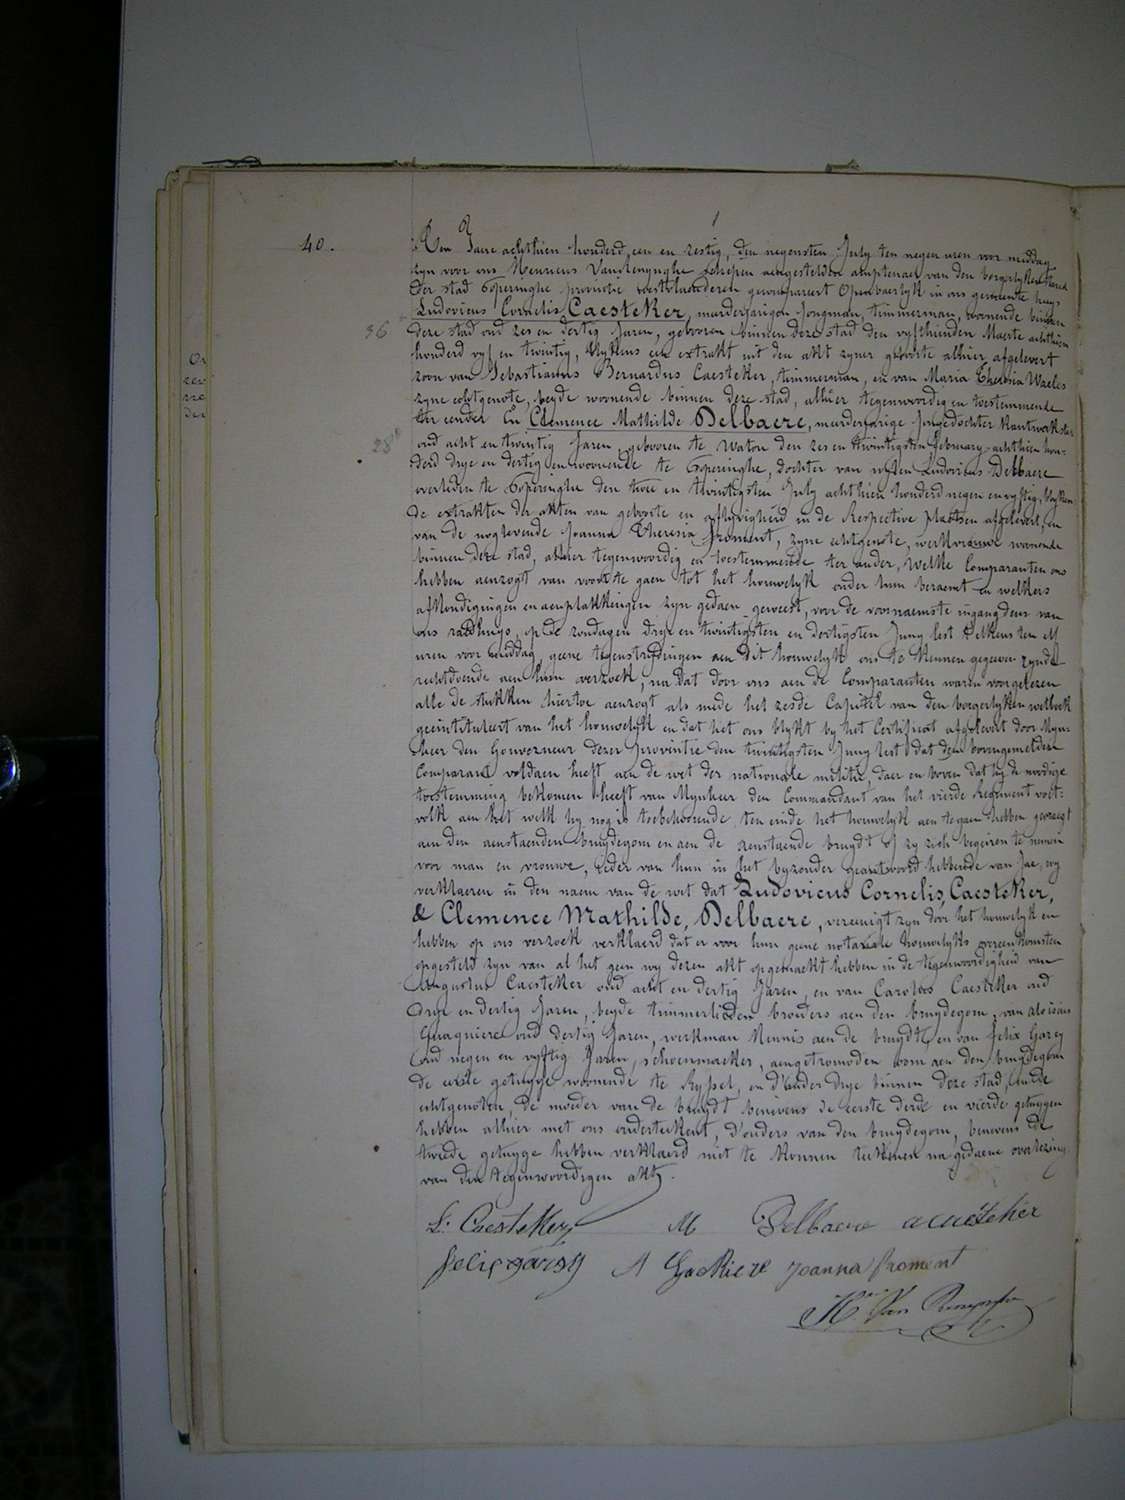 40.
Ten Jaere achthien honderd een en zestig, den negensten July ten negen uren voor middag
zyn voor ons Henricus Vanrenynghe schepen aengestelden amptenaer van den borgerlyken stand
der stad Poperinghe provincie westvlaenderen gecompareert Openbaerlyk in ons gemeente huys
Ludovicus Cornelis Caesteker, meerderjarigen Jongman, timmerman, woonende binnen
36
deze stad oud zes en dertig Jaren, gebooren binnen deze stad den vyfthienden Maerte achthien
honderd vyf en twintig, blykens een extrakt uit den akt zyner geboorte alhier afgelevert
zoon van Sebastianus Bernardus Caesteker, timmerman, en van Maria Theresia Waeles
zyne echtgenote, beyde woonende binnen deze stad, alhier tegenwoordig en toestemmende
ter eender En Clemence Mathilde Delbaere, meerderjarige Jongedochter Kantwerkster
28
oud acht en twintig Jaren gebooren te Watou den zes en twintigsten february achthien hon-
derd drye en dertig en woonende te Poperinghe, dochter van wylen Ludovicus Delbaere
overleden te Poperinghe den twee en twintigsten July achthien honderd negen en vyftig, blyken-
de extrakten der akten van geboorte en aflyvigheid in de Respective plaetsen afgelevert, en
van de noglevende Joanna Theresia Froment, zyne echtgenote, werkvrouwe woonende
binnen deze stad, alhier tegenwoordig en toestemmende ter ander, Welke Comparanten ons
hebben aenzogt van voorts te gaen tot het houwelyk onder hun beraemt en welkers
afkondigingen en aenplakkingen zyn gedaen geweest, voor de voornaemste ingangdeur van
ons raedhuys, op de zondagen drye en twintigsten en dertigsten Juny lest telkens ten elf
uren voor middag, geene tegenstrydingen aen dit houwelyk ons te kennen gegeven zynde
rechtdoende aen hun verzoek, na dat door ons aen de Comparanten waren voorgelezen
alle de stukken hiertoe aenzogt als mede het zesde Capittel van den borgerlyken wetboek
geëntituleert van het houwelyk en dat het ons blykt by het Certificat afgelevert door Myn-
heer den Gouverneur dezer provintie den twintigsten Juny lest dat den bovengemelden
Comparant voldaen heeft aen de wet der nationale militie, daer en boven dat hy de noodige
toestemming bekomen heeft van Mynheer den Commandant van het vierde Regiment voet-
volk aen het welk hy nog is toebehoorende, ten einde het houwelyk aen te gaen hebben gevraegt
aen den aenstaenden bruydegom en aen de aenstaende bruydt of zy zich begeiren te nemen
voor man en vrouwe, ieder van hun in het byzonder geantwoord hebbende van Jae, wy
verklaeren in den naem van de wet dat Ludovicus Cornelis, Caesteker,
& Clemence Mathilde, Delbaere, vereenigt zyn door het houwelyk en
hebben op ons verzoek verklaerd dat er voor hun geene notariale houwelyks overeenkomsten
opgesteld zyn van al het geen wy dezen akt opgemaekt hebben in de tegenwoordigheid van
Augustus Caesteker oud acht en dertig Jaren, en van Carolus Caesteker oud
drye en dertig Jaren, beyde timmerlieden broeders aen den bruydegom, van aloïsius
oud dertig Jaren, werkman Kennis aen de bruydt, en van felix Garcy
oud negen en vyftig Jaren, schoenmaeker, aengetrowden oom aen den bruydegom
de eerste getuyge woonende te Ryssel, en d'ander drye binnen deze stad,
echtgenoten, De moeder van de bruydt benevens de eerste derde en vierde getuygen
hebben alhier met ons onderteekent, d'ouders van den bruydegom, benevens de
tweede getuyge hebben verklaerd niet te konnen teekenen na gedaene overlezing
van den tegenwoordigen akt.
L. Caesteker M Delbaere a caesteker
felix garcy A joanna froment